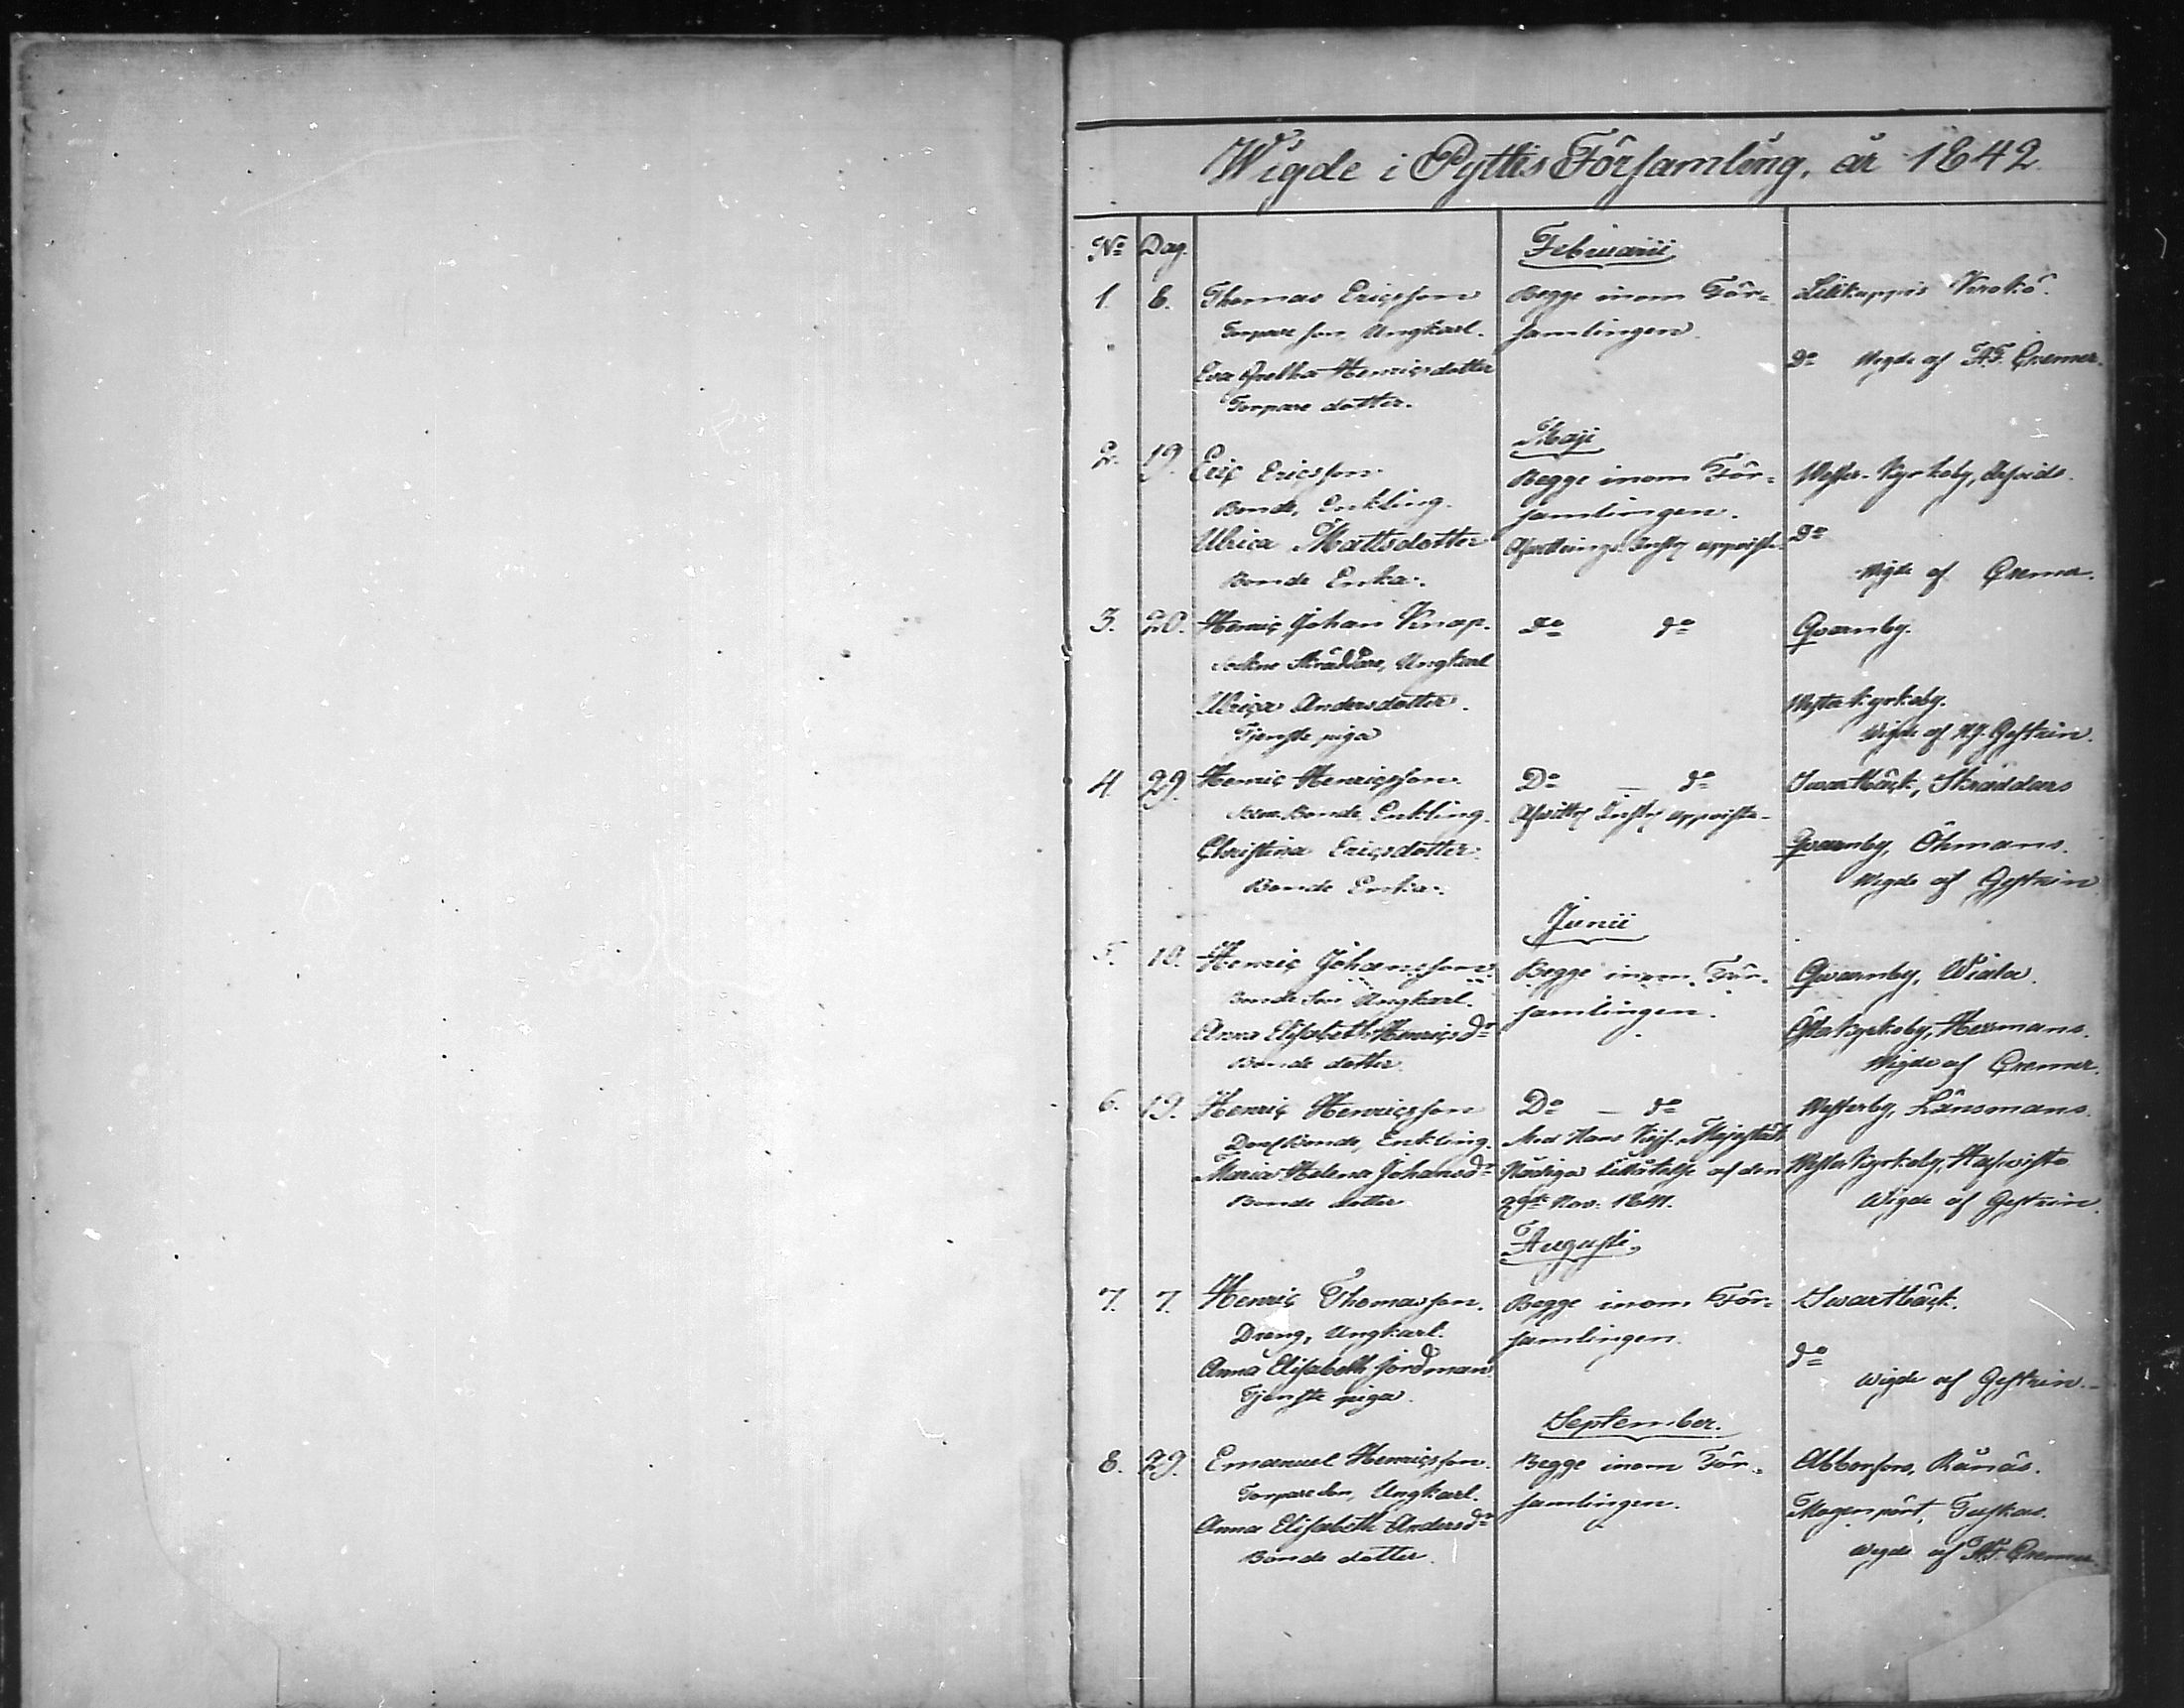 Wigde i Pyttis Församling, år 1842.
No Dag. Februarii
1. 6. Thomas Ericsson Begge inom För-
Torpare son, Ungkarl. samlingen.
Eva Henricsdotter Do Wigde af Cremer.
Torpare dotter.
Maji
2. 19. Eric Ericsson Begge inom För- Wester-Kyrkoby,
Bonde, Enkling. samlingen.
Ulrica Mattsdotter Do
Bonde Enka. Wigde af Cremer.
3. 20. Henric Johan Knap. Do do Qvarnby.
Sockne Skräddare, Ungkarl
Ulrica Andersdotter. Wester Kyrkoby.
Tjenste piga Wigde af Gestrin.
4. 29. Henric Henricsson. Do — do Swartbäck, Skräddars
Bonde Enkling.
Christina Ericsdotter. Qvarnby, Öhmans.
Bonde Enka. Wigde af Gestrin
Junii
5. 10. Henric Johansson. Begge inom För- Qvarnby, Wiala.
Bonde Son Ungkarl. samlingen.
Anna Elisabeth Henricsdr Öster Kyrkoby, Hermans.
Bonde dotter. Wigde af Cremer.
6. 19. Henric Henricsson Do — do Westerby, Länsmans.
Enkling. Med Hans Kejs. Majestäts
Maria Helena Johansdr Nådiga tillåtelse af den Wester Kyrkoby,
Bonde dotter Nov. 1841. Wigde af Gestrin.
Augusti
7. 7. Henric Thomasson. Begge inom För- Swartbäck.
Dräng, Ungkarl. samlingen.
Anna Elisabeth Jordman do
Tjenste piga. Wigde af Gestrin.
September.
8. 29. Emanuel Henricsson. Begge inom För- Abborfors, Rånäs.
Torpare Son, Ungkarl. samlingen.
Anna Elisabeth Andersdr Mogenpört, Tuskas.
Bonde dotter. Wigde af Cremer.